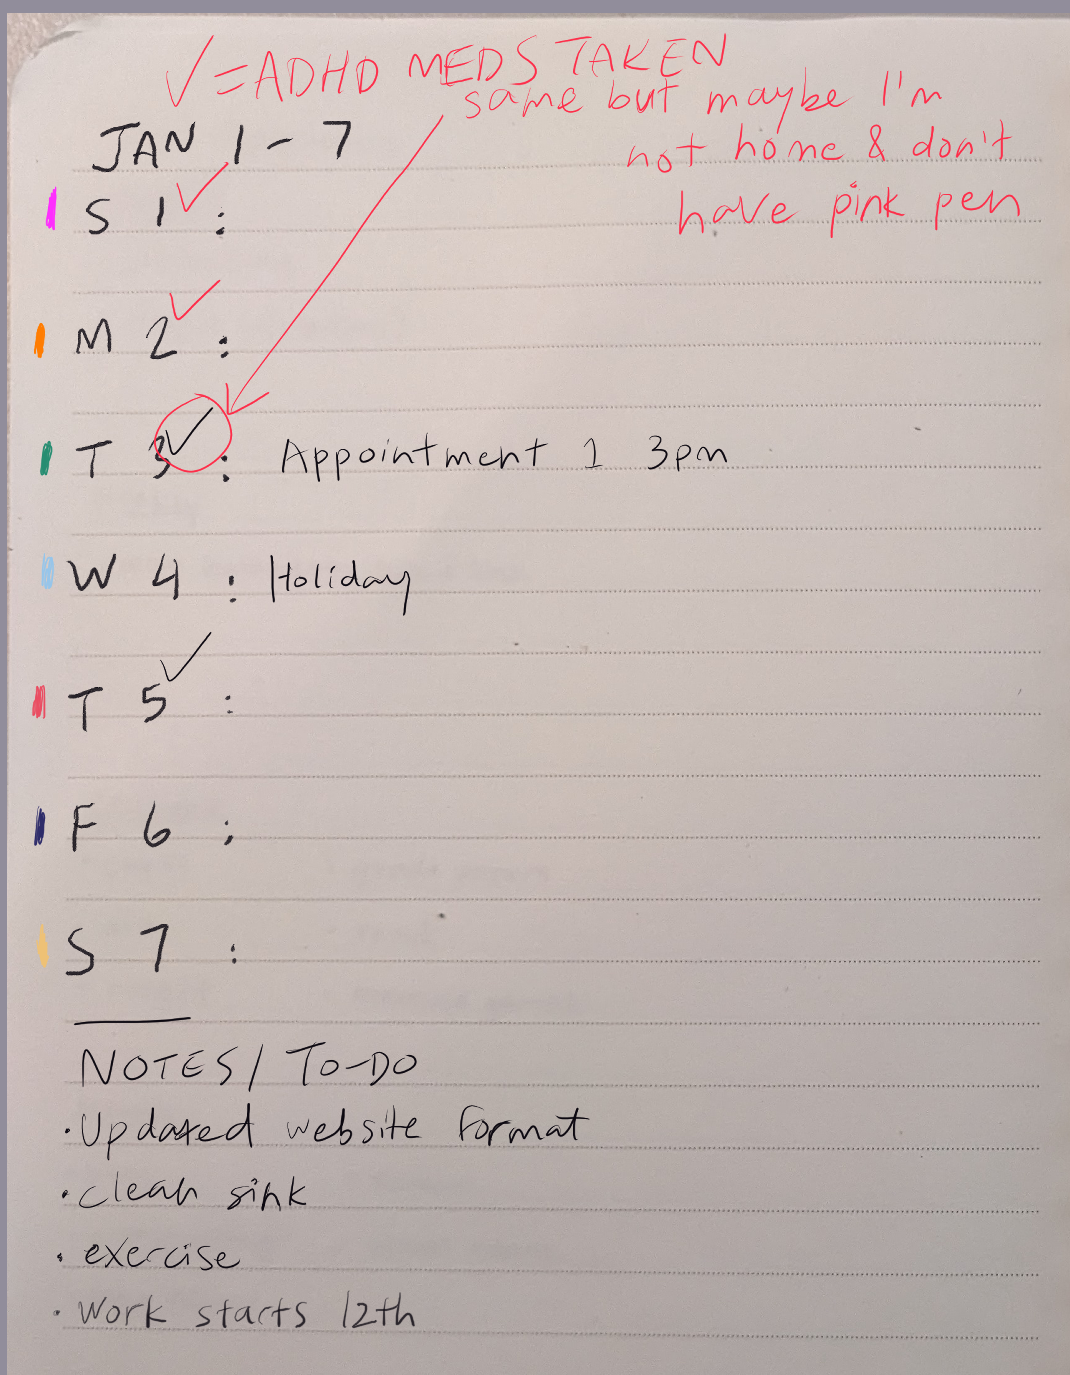 ✓=ADHD MEDS TAKEN
same but maybe I'm
not home & don't
have pink pen
JAN 1-7
S 1 ✓:
M 2 ✓:
T 3 ✓: Appointment 1 3pm
W 4 : Holiday
T 5 ✓:
F 6 :
S 7 :
NOTES/TO-DO
• Updated website format
• clean sink
• exercise
• Work starts 12th